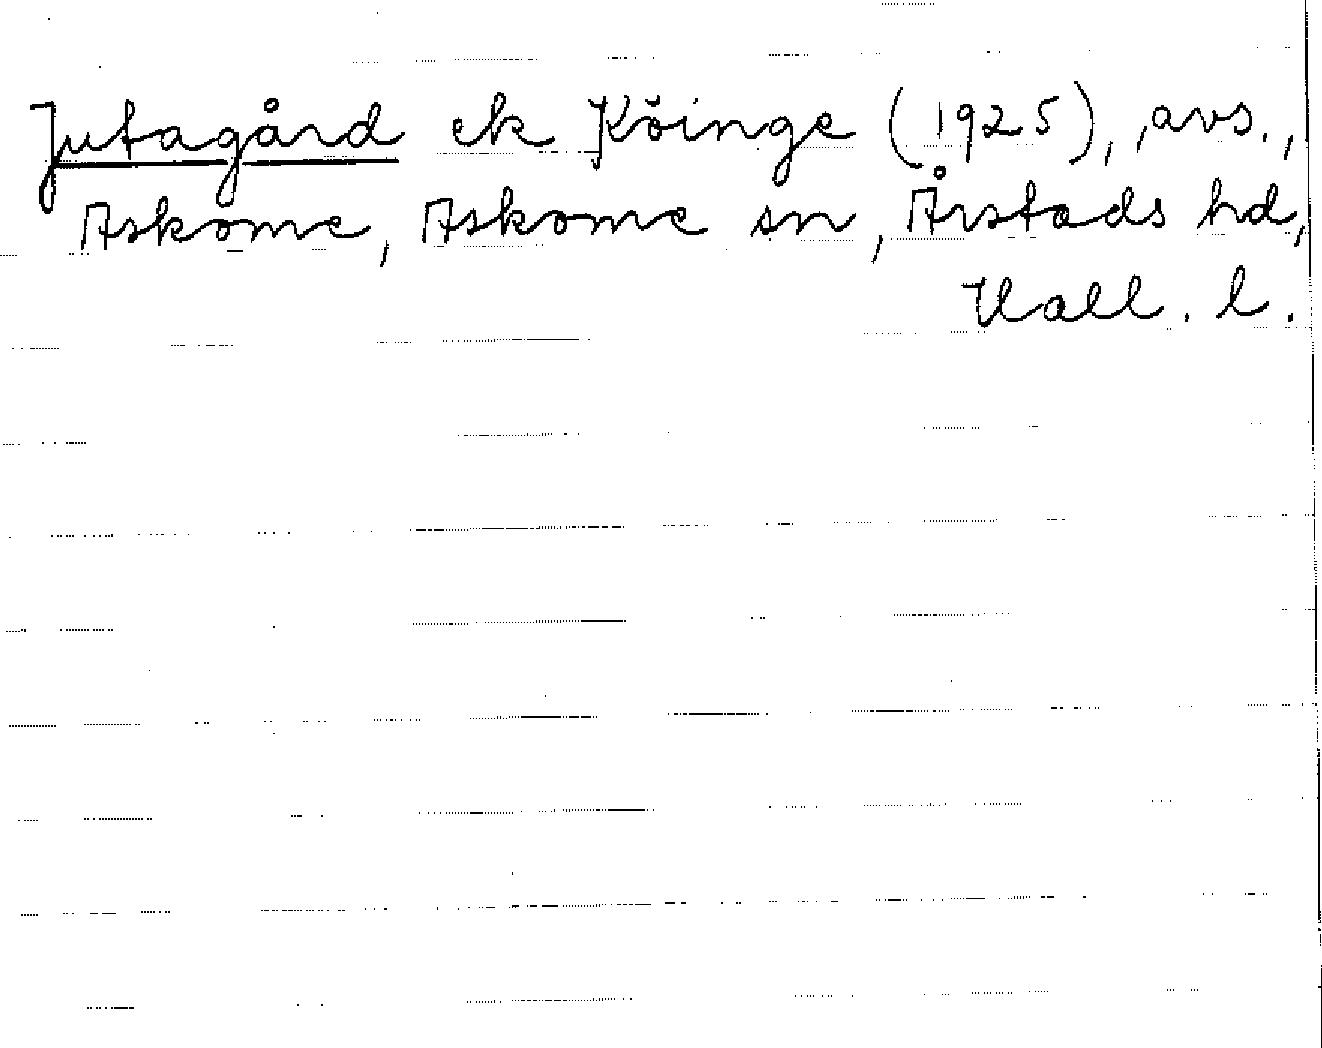 Jutagård ek Köinge (1925), avs.,
Askome, Askome sn, Årstads hd,
Hall. l.